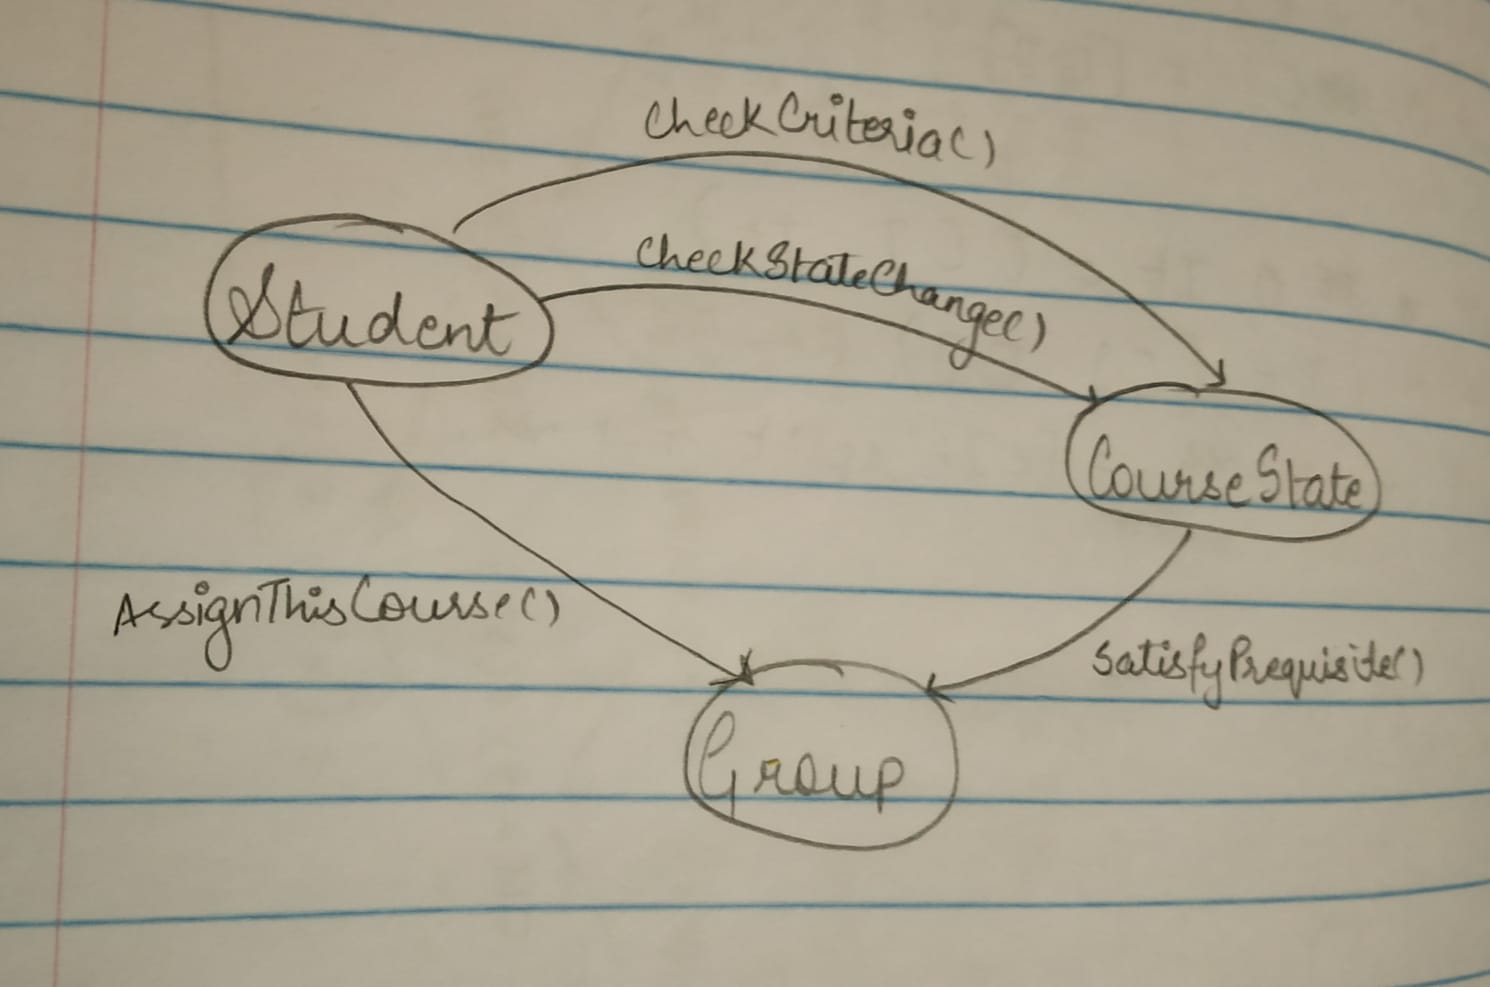 CheckCriteria()
CheckStateChange()
Student
CourseState
AssignThisCourse()
SatisfyPrequisite()
Group